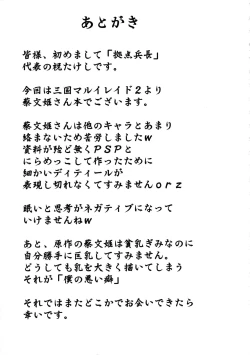 あとがき
皆様、初めまして「拠点兵長」
代表の祝たけしです。
今回は三国マルイレイド2より
蔡文姫さん本でございます。
蔡文姫さんは他のキャラとあまり
絡まないため苦労しましたw
資料が殆ど無くPSPと
にらめっこして作ったために
細かいディティールが
表現し切れなくてすみませんorz
眠いと思考がネガティブになって
いけませんねw
あと、原作の蔡文姫は貧乳ぎみなのに
自分勝手に巨乳してすみません。
どうしても乳を大きく描いてしまう
それが「僕の悪い癖」
それではまたどこかでお会いできたら
幸いです。